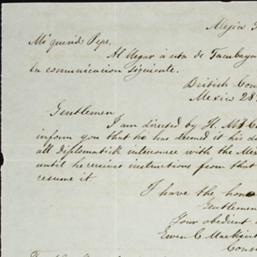 Mejia
Mi querido Pepe.
Al llegar á esta de Tacubaya
la comunicacion siguiente.
British Con
Mexico 28
Gentlemen
I am directed by H. M. C
inform you that he has deemed it his d
all diplomatick intercourse with the Mex
until he receives instructions from that
resume it
I have the hono
Gentlemen
Your obedient
Ewen C. Mackint
Consu